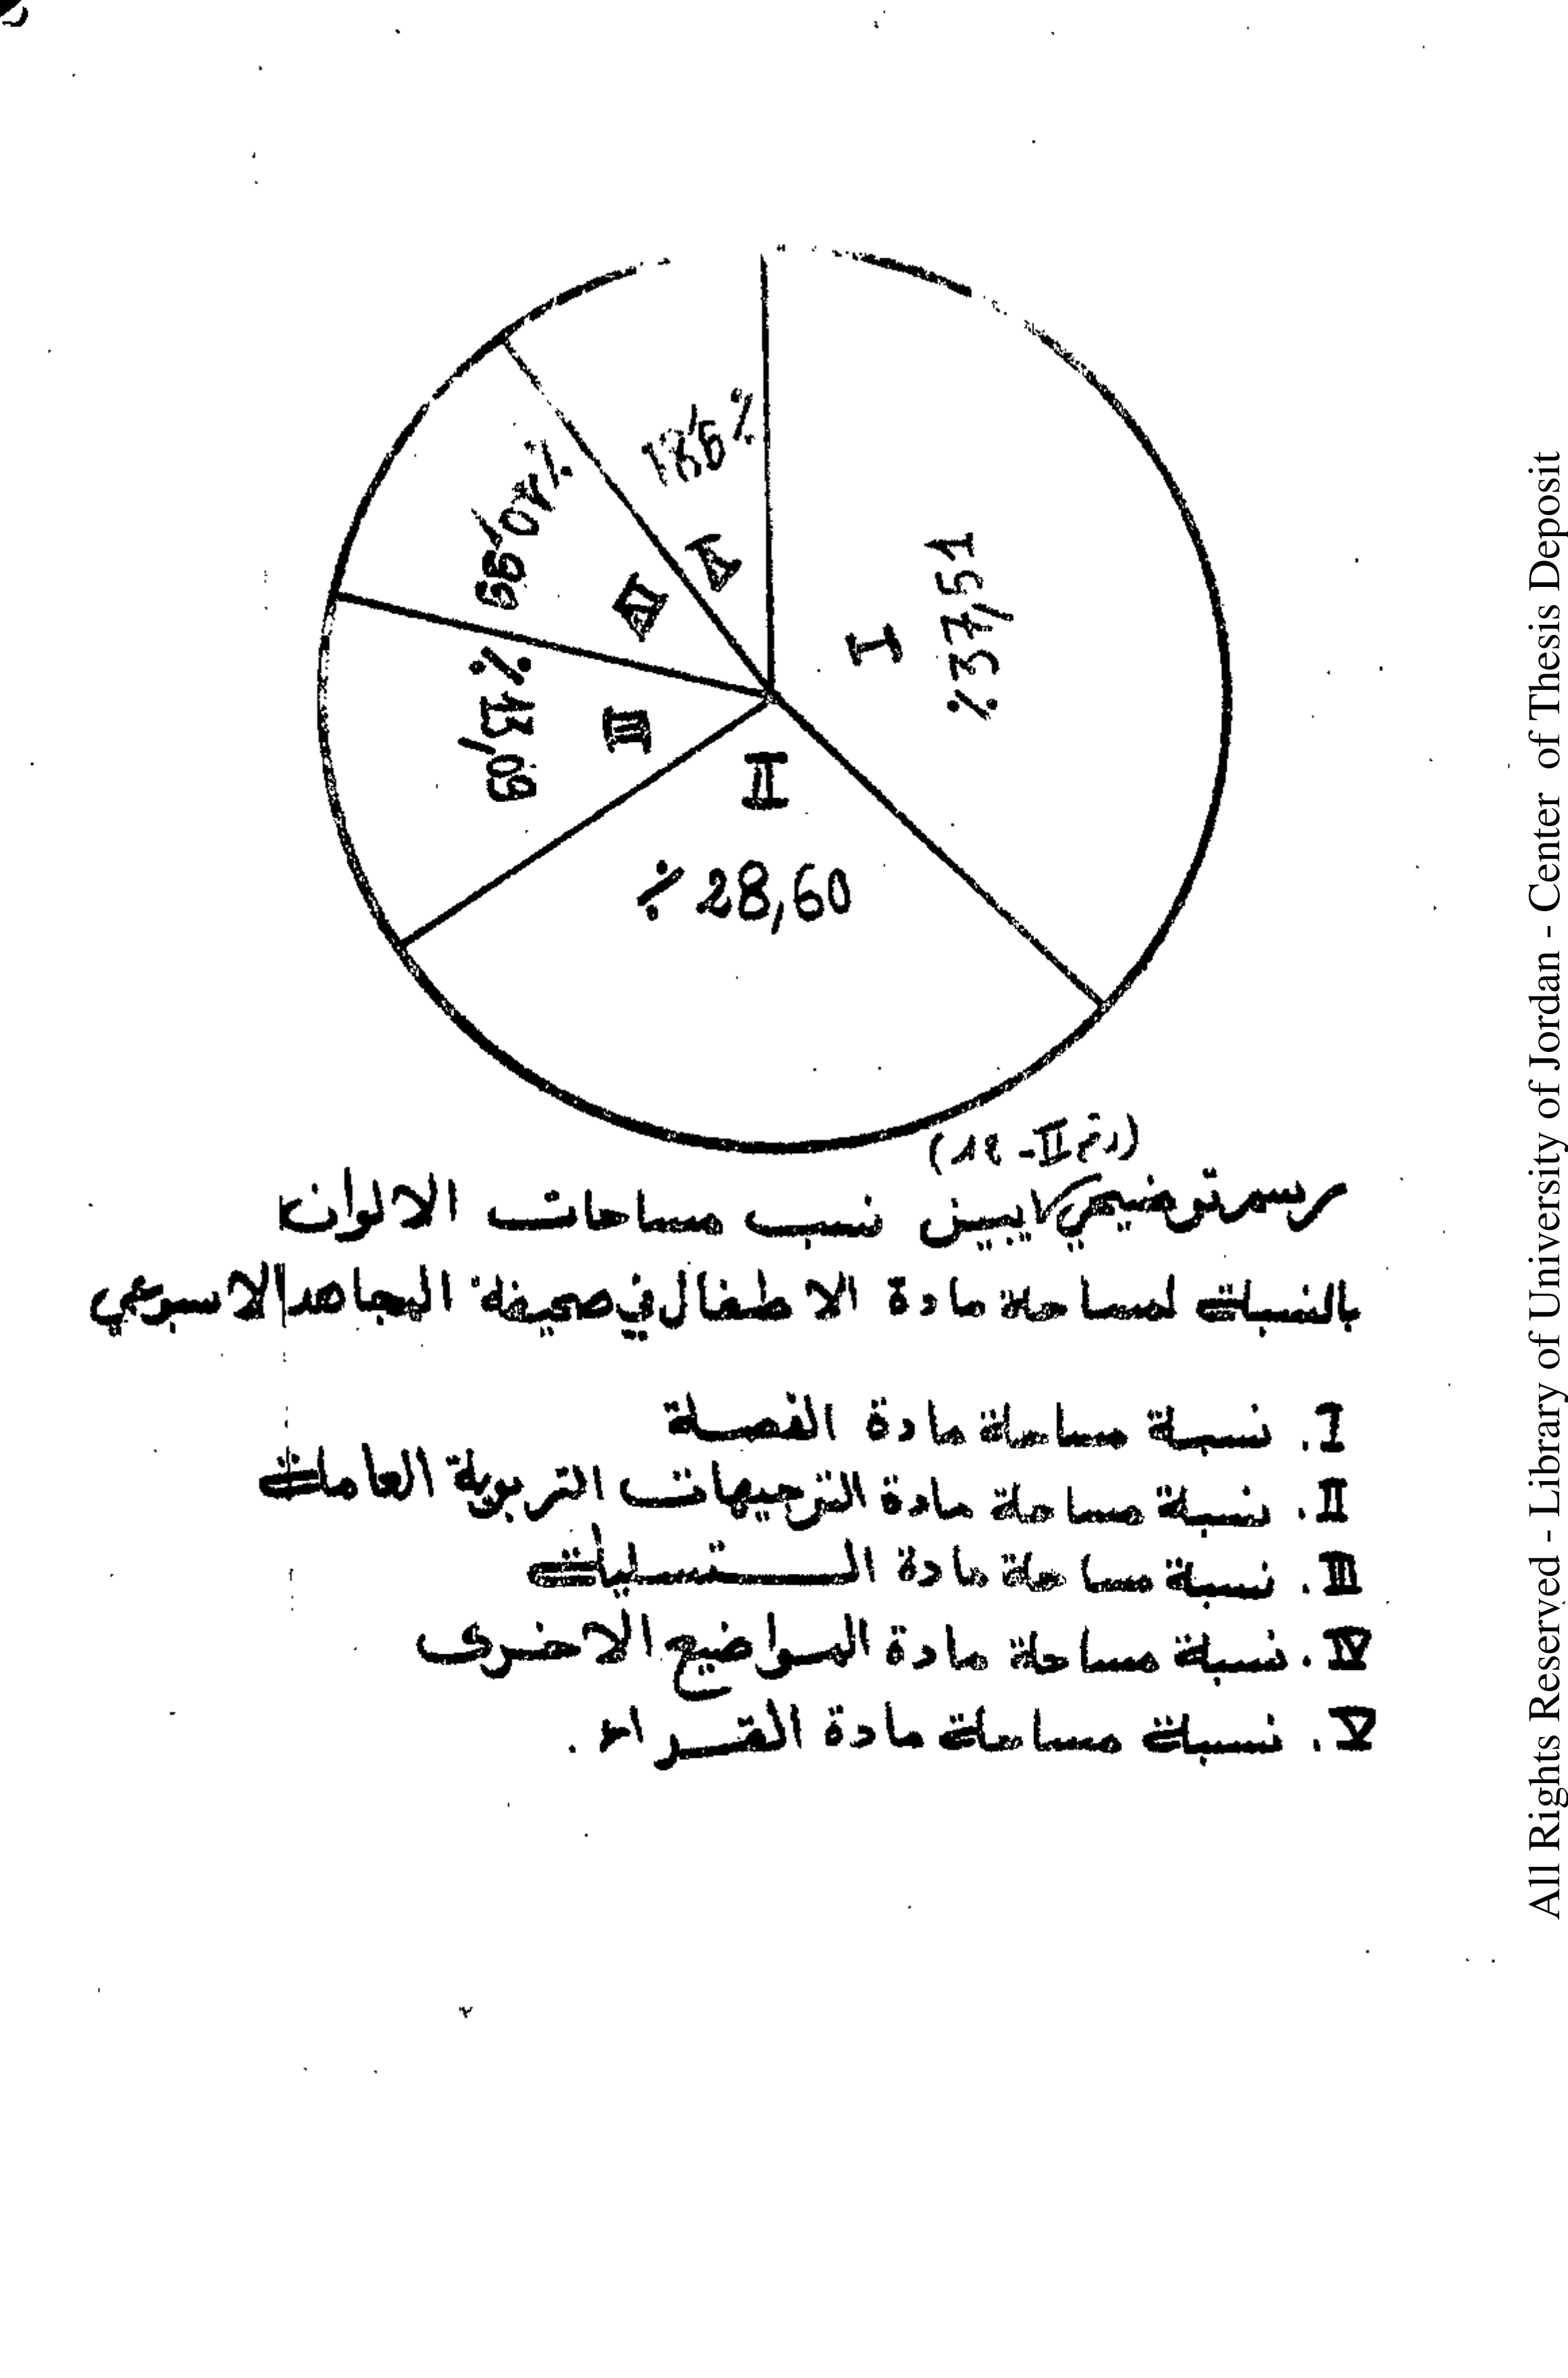 V
٪9,81
IV
٪10,99
I
٪37,51
III
٪13,09
II
٪28,60
(رقم II-
رسم توضيحي يبين نسب مساحات الالوان
بالنسبة لمساحة مادة الاطفال في صحيفة المجاهد الاسبوعي
I. نسبة مساحة مادة القصة
II. نسبة مساحة مادة التوجيهات التربوية العامة
III. نسبة مساحة مادة التسلية
IV. نسبة مساحة مادة المواضيع الاخرى
V. نسبة مساحة مادة القراء.
All Rights Reserved - Library of University of Jordan - Center of Thesis Deposit